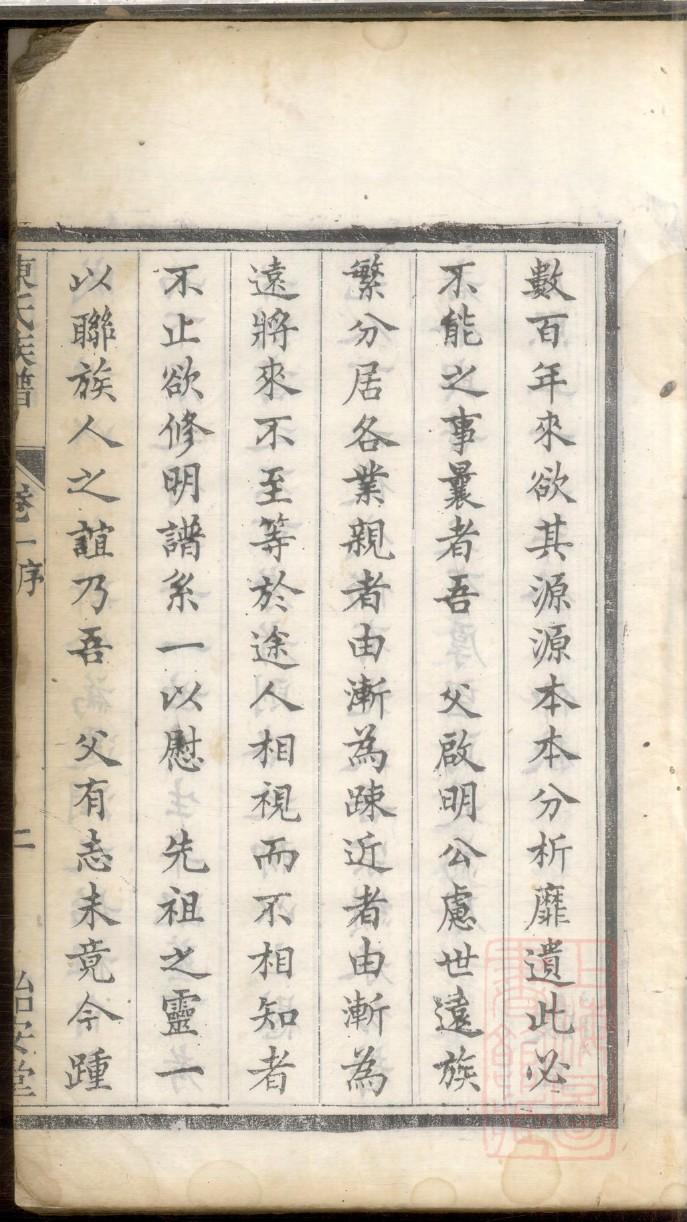 數百年來欲其源源本本分析靡遺此必
不能之事曩者吾 父啟明公慮世遠族
繁分居各業親者由漸為踈近者由漸為
遠將來不至等於途人相視而不相知者
不止欲修明譜系一以慰 先祖之靈一
以聯族人之誼乃吾 父有志未竟今踵
陳氏族譜 卷一序 二 治安堂